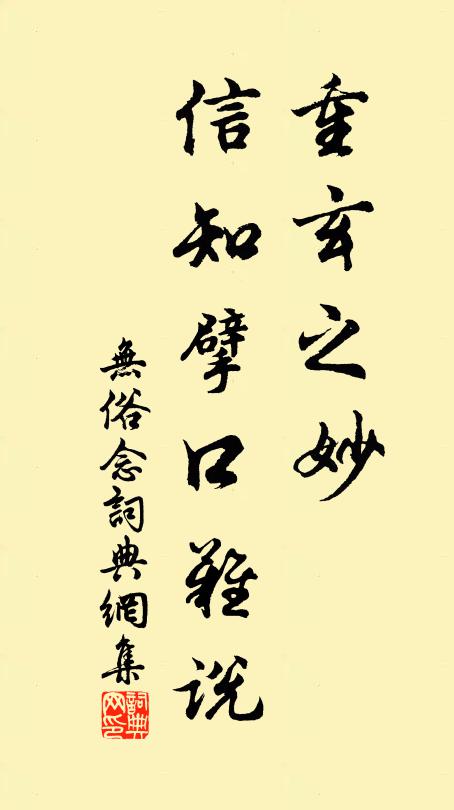 重玄之妙
信知擘口難說
無俗念詞典網集
詞典
网印